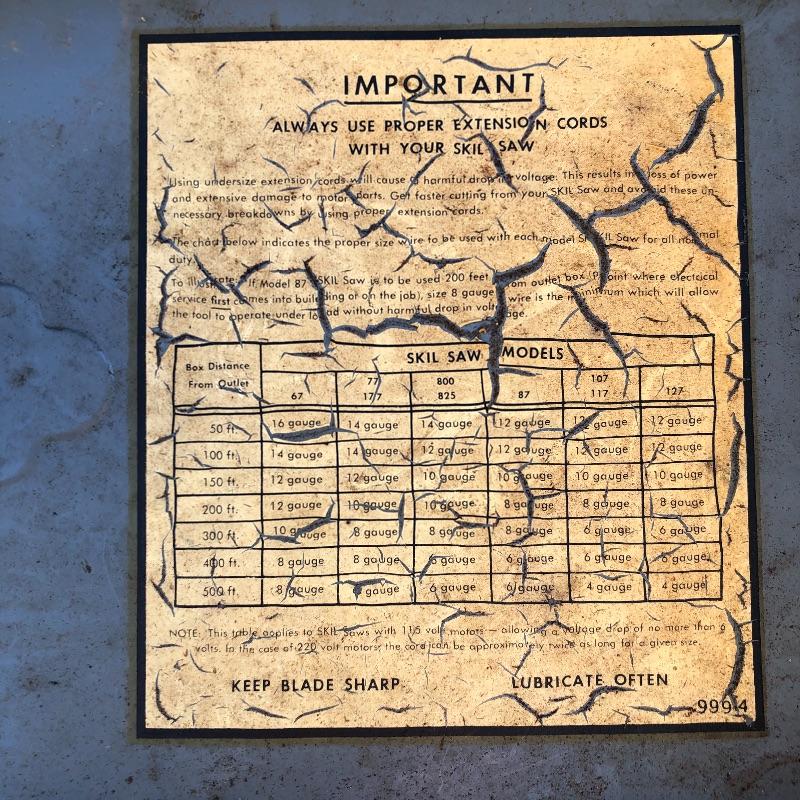 IMPORTANT
ALWAYS USE PROPER EXTENSION CORDS
WITH YOUR SKIL SAW
Using undersize extension cords will cause a harmful drop in voltage. This results in loss of power
and extensive damage to motor parts. Get faster cutting from your SKIL Saw and avoid these un-
necessary breakdowns by using proper extension cords.
The chart below indicates the proper size wire to be used with each model SKIL Saw for all normal
duty.
To illustrate: If Model 87 SKIL Saw is to be used 200 feet from outlet box (Point where electrical
service first comes into building or on the job), size 8 gauge wire is the minimum which will allow
the tool to operate under load without harmful drop in voltage.
Box Distance From Outlet SKIL SAW MODELS
67 77 177 800 825 87 107 117 127
50 ft. 16 gauge 14 gauge 14 gauge 12 gauge 12 gauge 12 gauge
100 ft. 14 gauge 14 gauge 12 gauge 12 gauge 12 gauge 12 gauge
150 ft. 12 gauge 12 gauge 10 gauge 10 gauge 10 gauge 10 gauge
200 ft. 12 gauge 10 gauge 10 gauge 8 gauge 8 gauge 8 gauge
300 ft. 10 gauge 8 gauge 8 gauge 8 gauge 6 gauge 6 gauge
400 ft. 8 gauge 8 gauge gauge 6 gauge 6 gauge 6 gauge
500 ft. 8 gauge gauge 6 gauge 6 gauge 4 gauge 4 gauge
NOTE: This table applies to SKIL Saws with 115 volt motors — allowing a voltage drop of no more than 6
volts. In the case of 220 volt motors, the cord can be approximately twice as long for a given size.
KEEP BLADE SHARP LUBRICATE OFTEN
9994